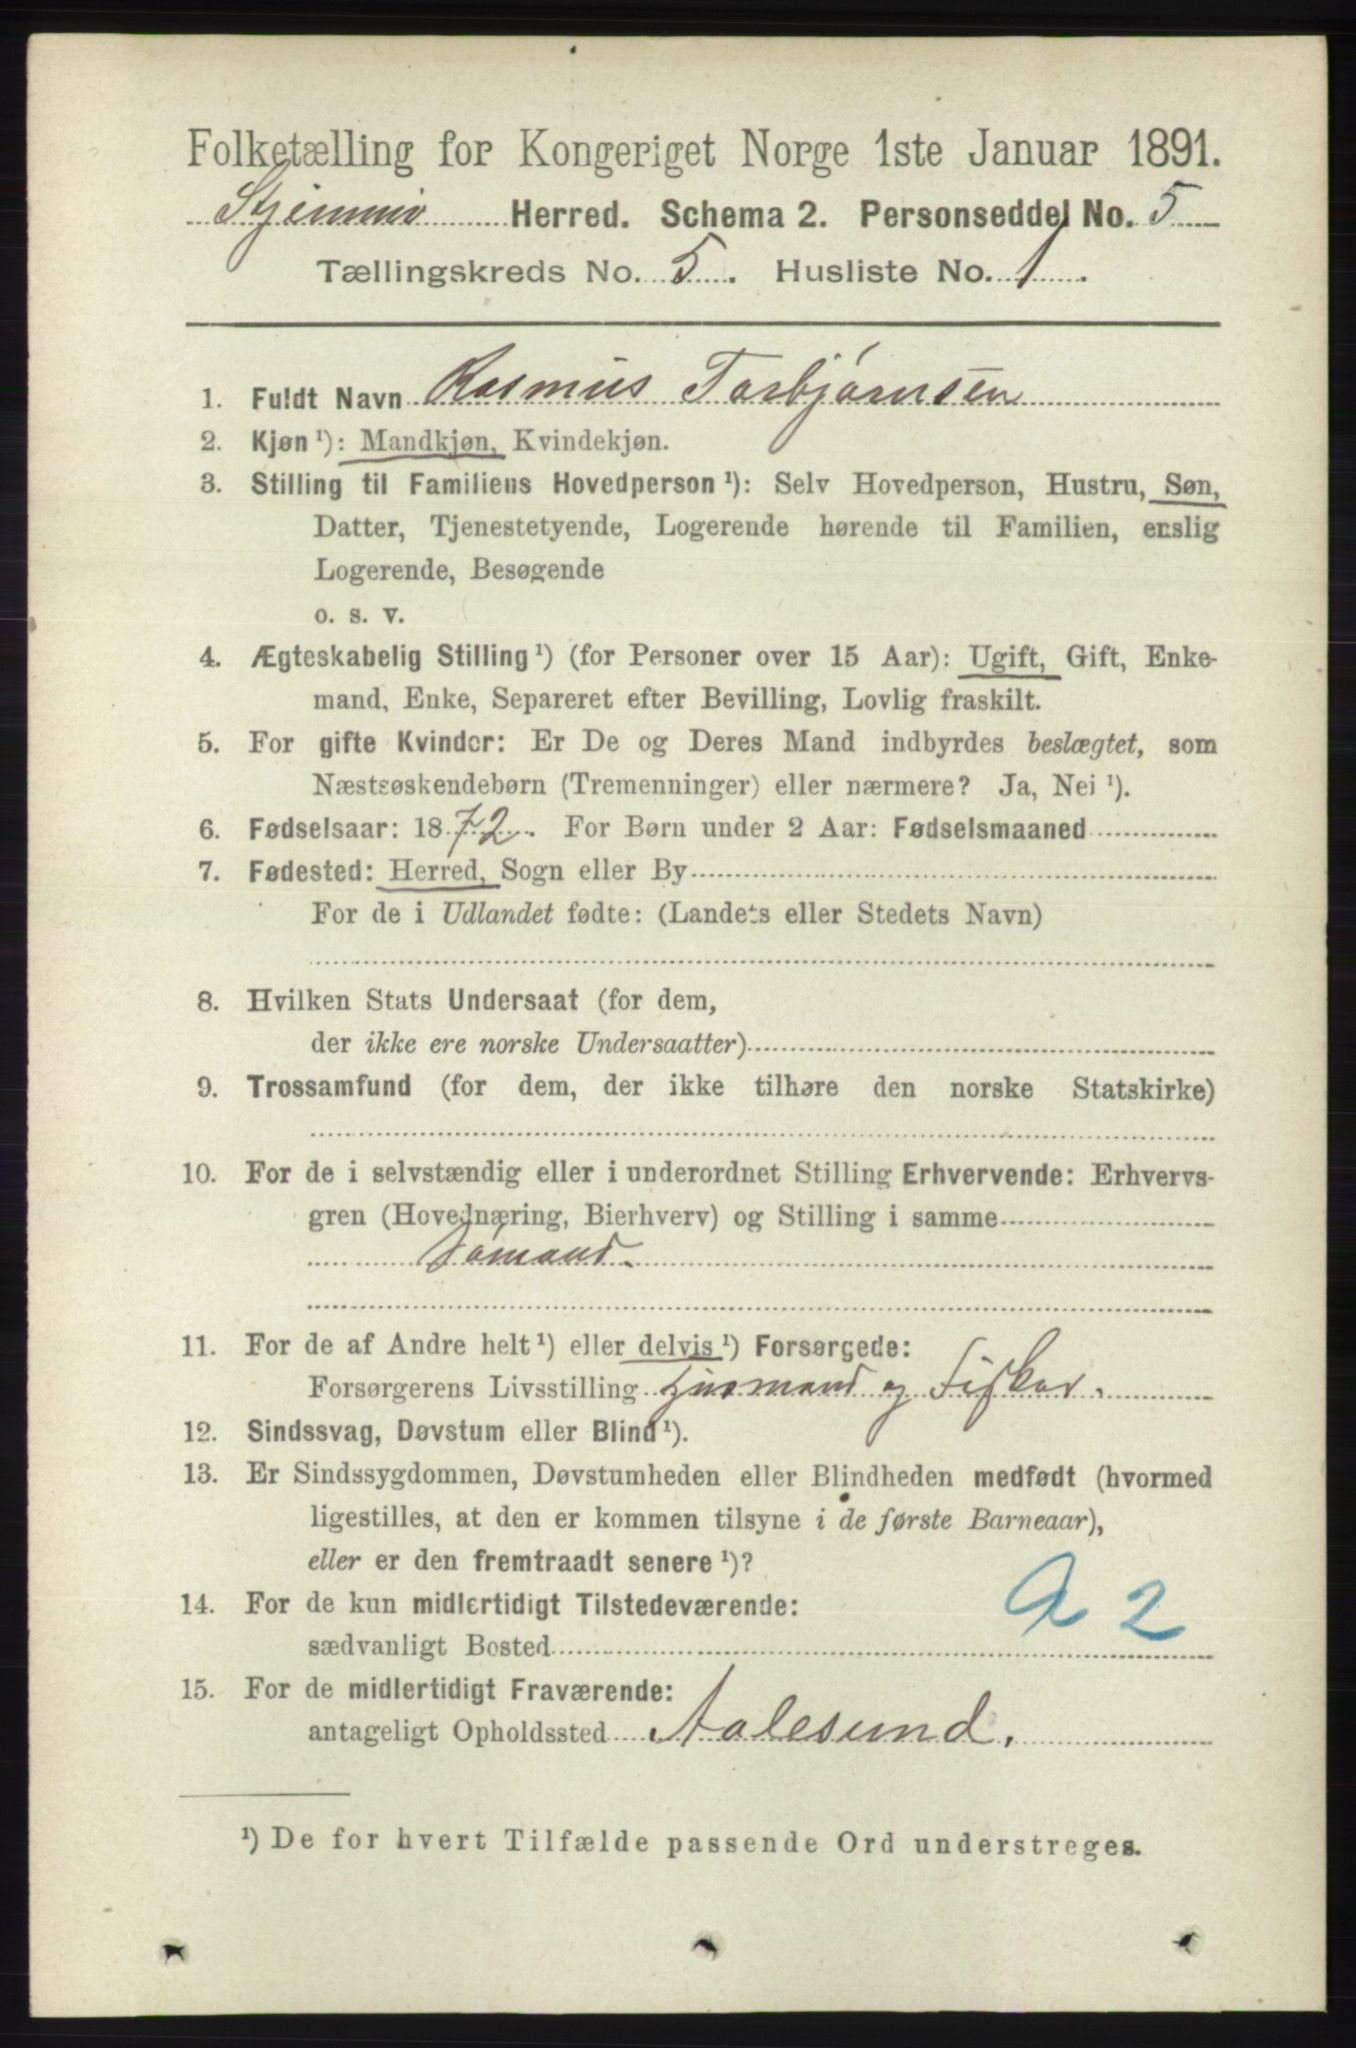 Folketælling for Kongeriget Norge 1ste Januar 1891.
Stjernø Herred. Schema 2. Personseddel No. 5
Tællingskreds No. 5. Husliste No. 1.
1. Fuldt Navn Rasmus Torbjørnsen
2. Kjøn ¹): Mandkjøn, Kvindekjøn.
3. Stilling til Familiens Hovedperson ¹): Selv Hovedperson, Hustru, Søn,
Datter, Tjenestetyende, Logerende hørende til Familien, enslig
Logerende, Besøgende
o. s. v.
4. Ægteskabelig Stilling ¹) (for Personer over 15 Aar): Ugift, Gift, Enke-
mand, Enke, Separeret efter Bevilling, Lovlig fraskilt.
5. For gifte Kvinder: Er De og Deres Mand indbyrdes beslægtet, som
Næstsøskendebørn (Tremenninger) eller nærmere? Ja, Nei ¹).
6. Fødselsaar: 1872. For Børn under 2 Aar: Fødselsmaaned
7. Fødested: Herred, Sogn eller By
For de i Udlandet fødte: (Landets eller Stedets Navn)
8. Hvilken Stats Undersaat (for dem,
der ikke ere norske Undersaatter)
9. Trossamfund (for dem, der ikke tilhøre den norske Statskirke)
10. For de i selvstændig eller i underordnet Stilling Erhvervende: Erhvervs-
gren (Hovednæring, Bierhverv) og Stilling i samme
Sømand.
11. For de af Andre helt ¹) eller delvis ¹) Forsørgede:
Forsørgerens Livsstilling Husmand og Fisker.
12. Sindssvag, Døvstum eller Blind ¹).
13. Er Sindssygdommen, Døvstumheden eller Blindheden medfødt (hvormed
ligestilles, at den er kommen tilsyne i de første Barneaar),
eller er den fremtraadt senere ¹)?
14. For de kun midlertidigt Tilstedeværende:
sædvanligt Bosted
a 2
15. For de midlertidigt Fraværende:
antageligt Opholdssted Aalesund.
¹) De for hvert Tilfælde passende Ord understreges.